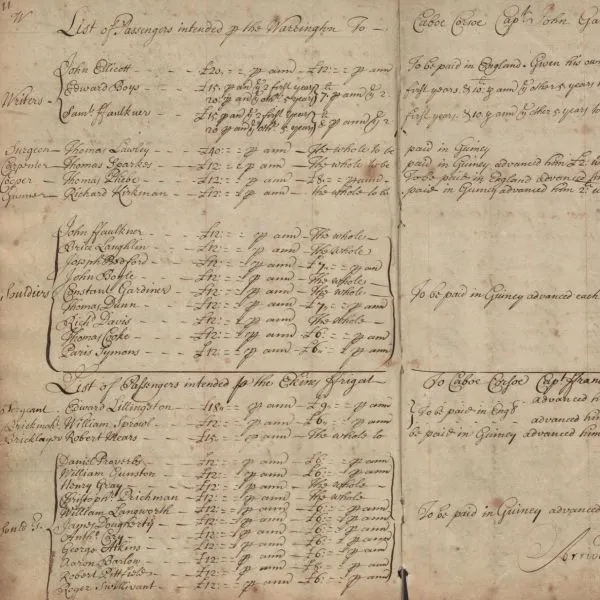 List of Passengers intended p the Warrington To — Caboe Corsoe Capt John Ga
Writers
John Ellicott — £20 :=: p ann — £12 :=: p ann To be paid in England. Given his own
Edward Boys — £15 p ann ye 2 first years &
20 p ann ye oth 5 years 7 p ann ye 2 first years. & 10 p ann ye other 5 years to
Saml ffaulkner — £15 p ann ye 2 first years &
20 p ann ye oth 5 years p ann ye 2 first years & 10 p ann ye other 5 years to
Surgeon — Thomas Lawley — £40 :=: p ann — The whole to be paid in Guiney
Carpenter Thomas Sparkes — £12 :=: p ann — The whole to be paid in Guiney advanced him £2
Cooper — Thomas Phebe — £12 :=: p ann — £8 :=: p ann — To be paid in England advanced
Gunner — Richard Kirkman — £12 :=: p ann — the whole to be paid in Guiney advanced him
Souldiers
John ffaulkner — £12 :=: p ann — The whole
Brice Laughlen — £12 :=: p ann — The whole
Joseph Bedford — £12 :=: p ann — £7 :=: p an
John Boyle — £12 :=: p ann — The whole
Constant Gardiner — £12 :=: p ann — The whole
Thomas Dunn — £12 :=: p ann — £7 :=: p ann To be paid in Guiney advanced each
Richd Davis — £12 :=: p ann — The whole
Thomas Cooke — £12 :=: p ann — £6 :=: p ann
Paris Symons — £12 :=: p ann — £6 :=: p ann
List of Passengers intended p the Ekins Frigat — To Caboe Corsoe Capt ffran
Sergeant — Edward Lillingston — £18 :=: p ann — £9 :=: p ann advanced h
Brickmakr William Sprowl — £12 :=: p ann — £6 :=: p ann To be paid in Engd advanced him
Bricklayer Robert Mears — £15 :=: p ann — The whole to be paid in Guiney advanced him
Daniel Proverbs — £12 :=: p ann — £6 :=: p ann
William Gunston — £12 :=: p ann — £6 :=: p ann
Henry Gray — £12 :=: p ann — The whole
Christophr Prichman — £12 :=: p ann — the whole
William Langworth — £12 :=: p ann — £6 :=: p ann
James Dougherty — £12 :=: p ann — £6 :=: p ann To be paid in Guiney advanced
Anthy Cary — £12 :=: p ann — £6 :=: p ann
George Atkins — £12 :=: p ann — £6 :=: p ann
Aaron Barlow — £12 :=: p ann — £6 :=: p ann
Robert Pittfield — £12 :=: p ann — £6 :=: p ann
Roger Swillivant — £12 :=: p ann — £6 :=: p ann